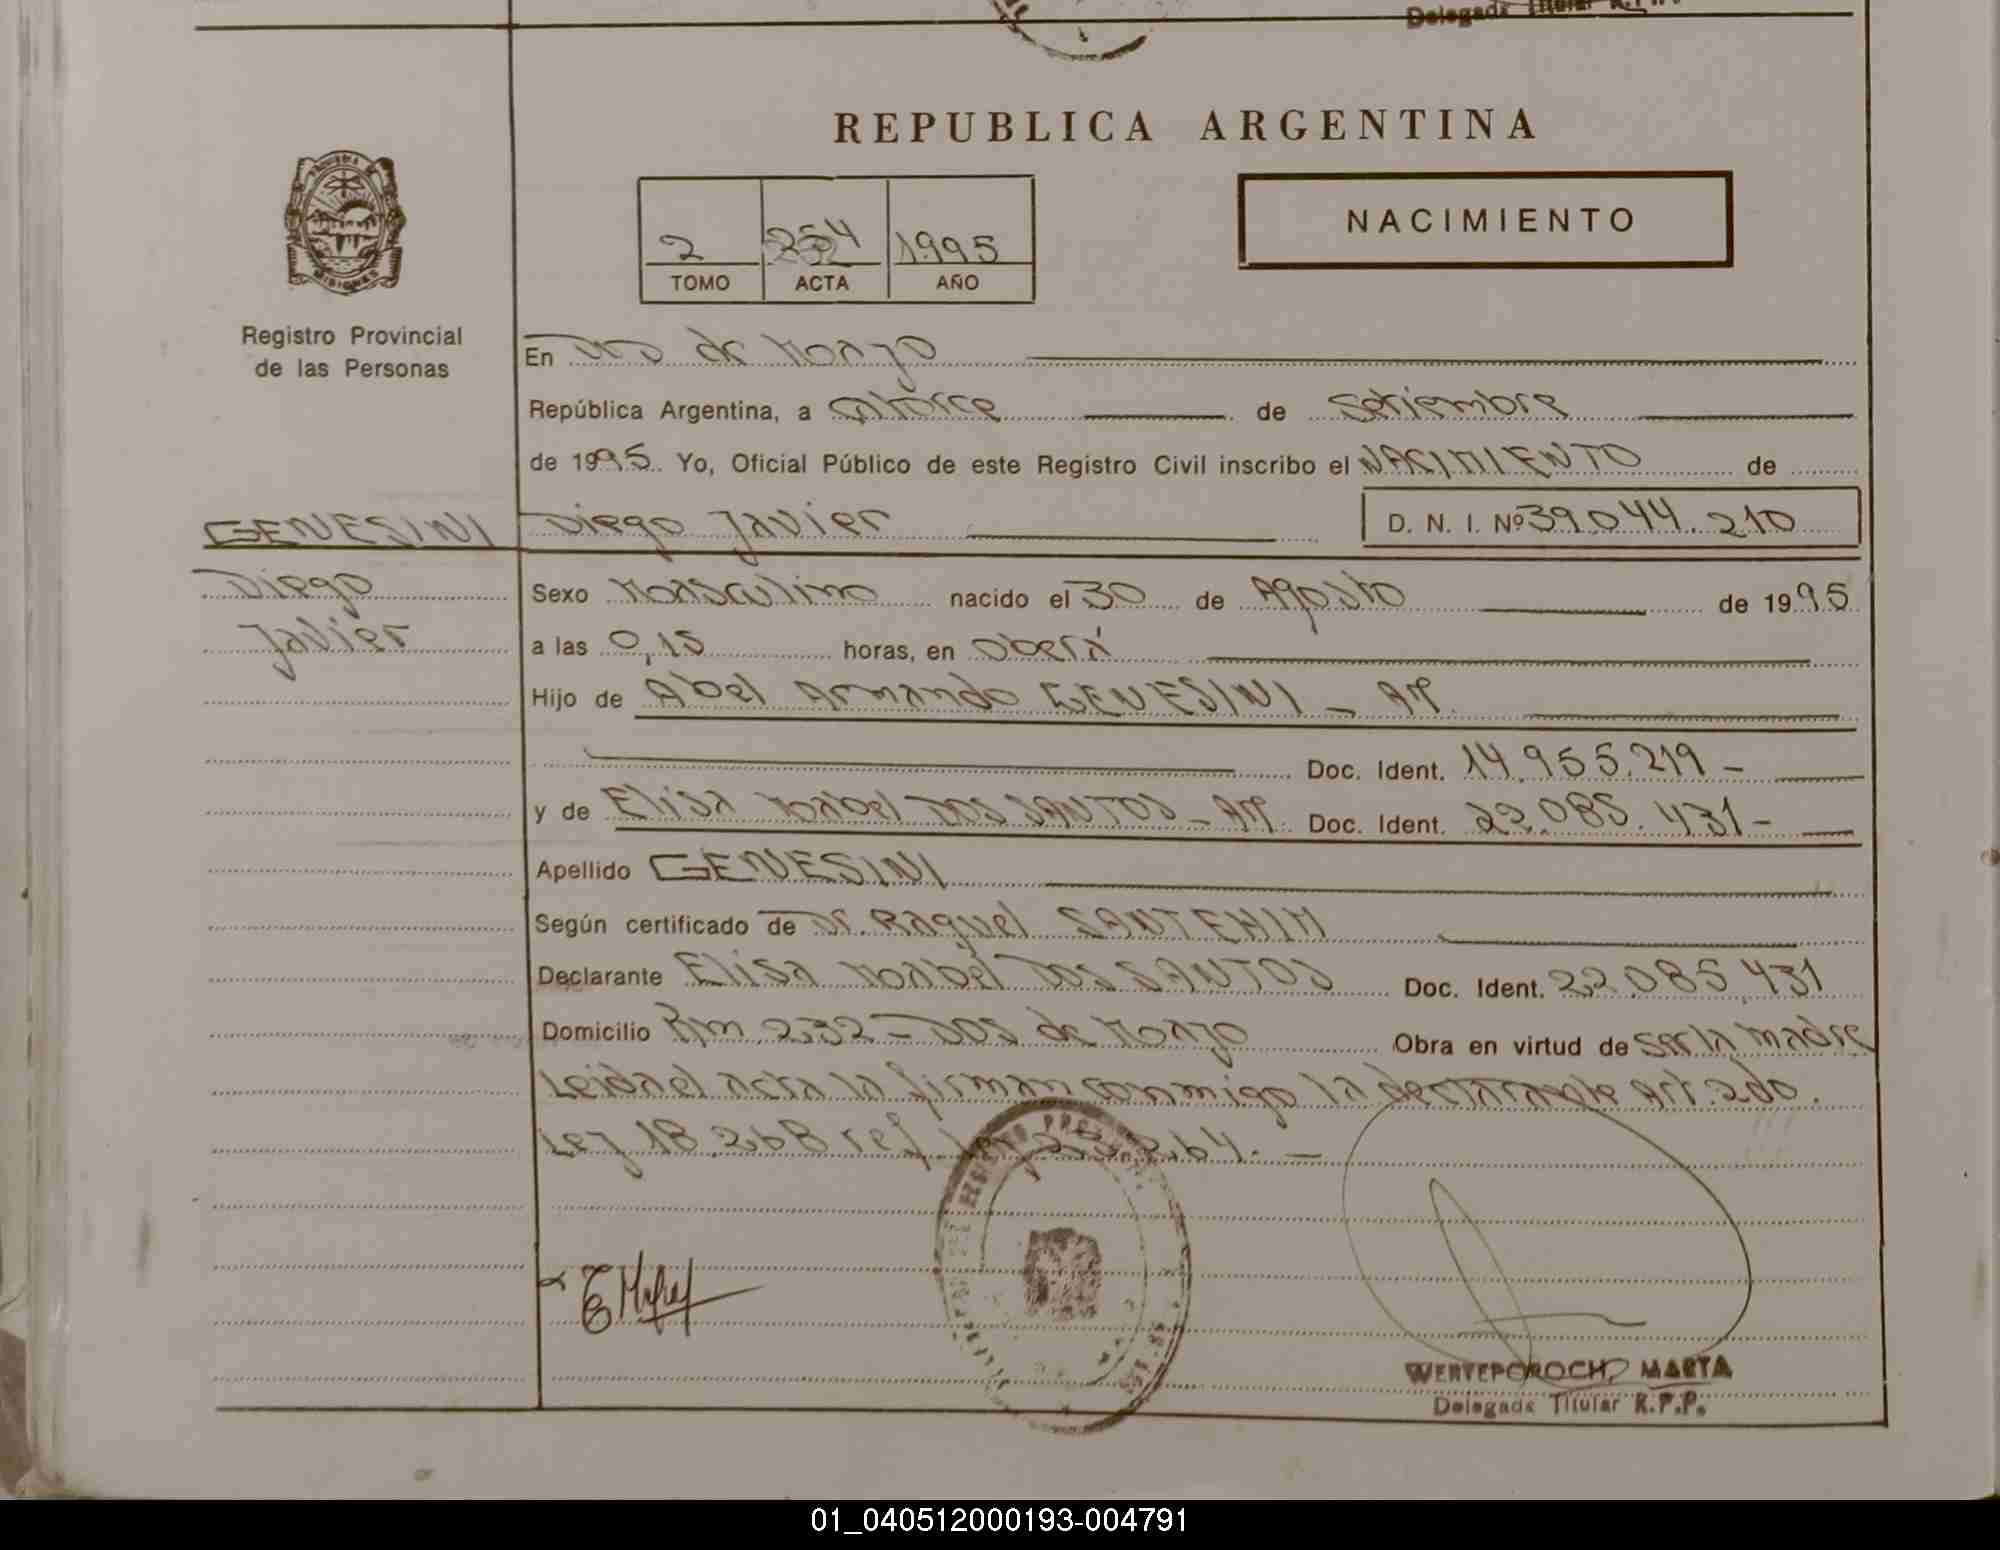 Delegada Titular R.P.P.
REPUBLICA ARGENTINA
NACIMIENTO
2 254 1995
TOMO ACTA AÑO
Registro Provincial
de las Personas
En Dos de Mayo
República Argentina, a catorce de setiembre
de 1995. Yo, Oficial Público de este Registro Civil inscribo el NACIMIENTO de
GENESINI Diego Javier D. N. I. Nº 39.044.210
Diego
Javier
Sexo Masculino nacido el 30 de Agosto de 1995
a las 0,15 horas, en Oberá
Hijo de Abel Armando GENESINI - AR.
Doc. Ident. 14.955.219 -
y de Elisa Mabel DOS SANTOS - AR. Doc. Ident. 22.085.431 -
Apellido GENESINI
Según certificado de Dr. Raquel
Declarante Elisa Mabel DOS SANTOS Doc. Ident. 22.085.431
Domicilio Km. 232 - Dos de Mayo Obra en virtud de ser la madre
Leida el acta la firman conmigo la declarante Art. 2do.
Ley 18.268 ref. Ley 23.264. -
WERTEPOROCH, MARTA
Delegada Titular R.P.P.
01_040512000193-004791